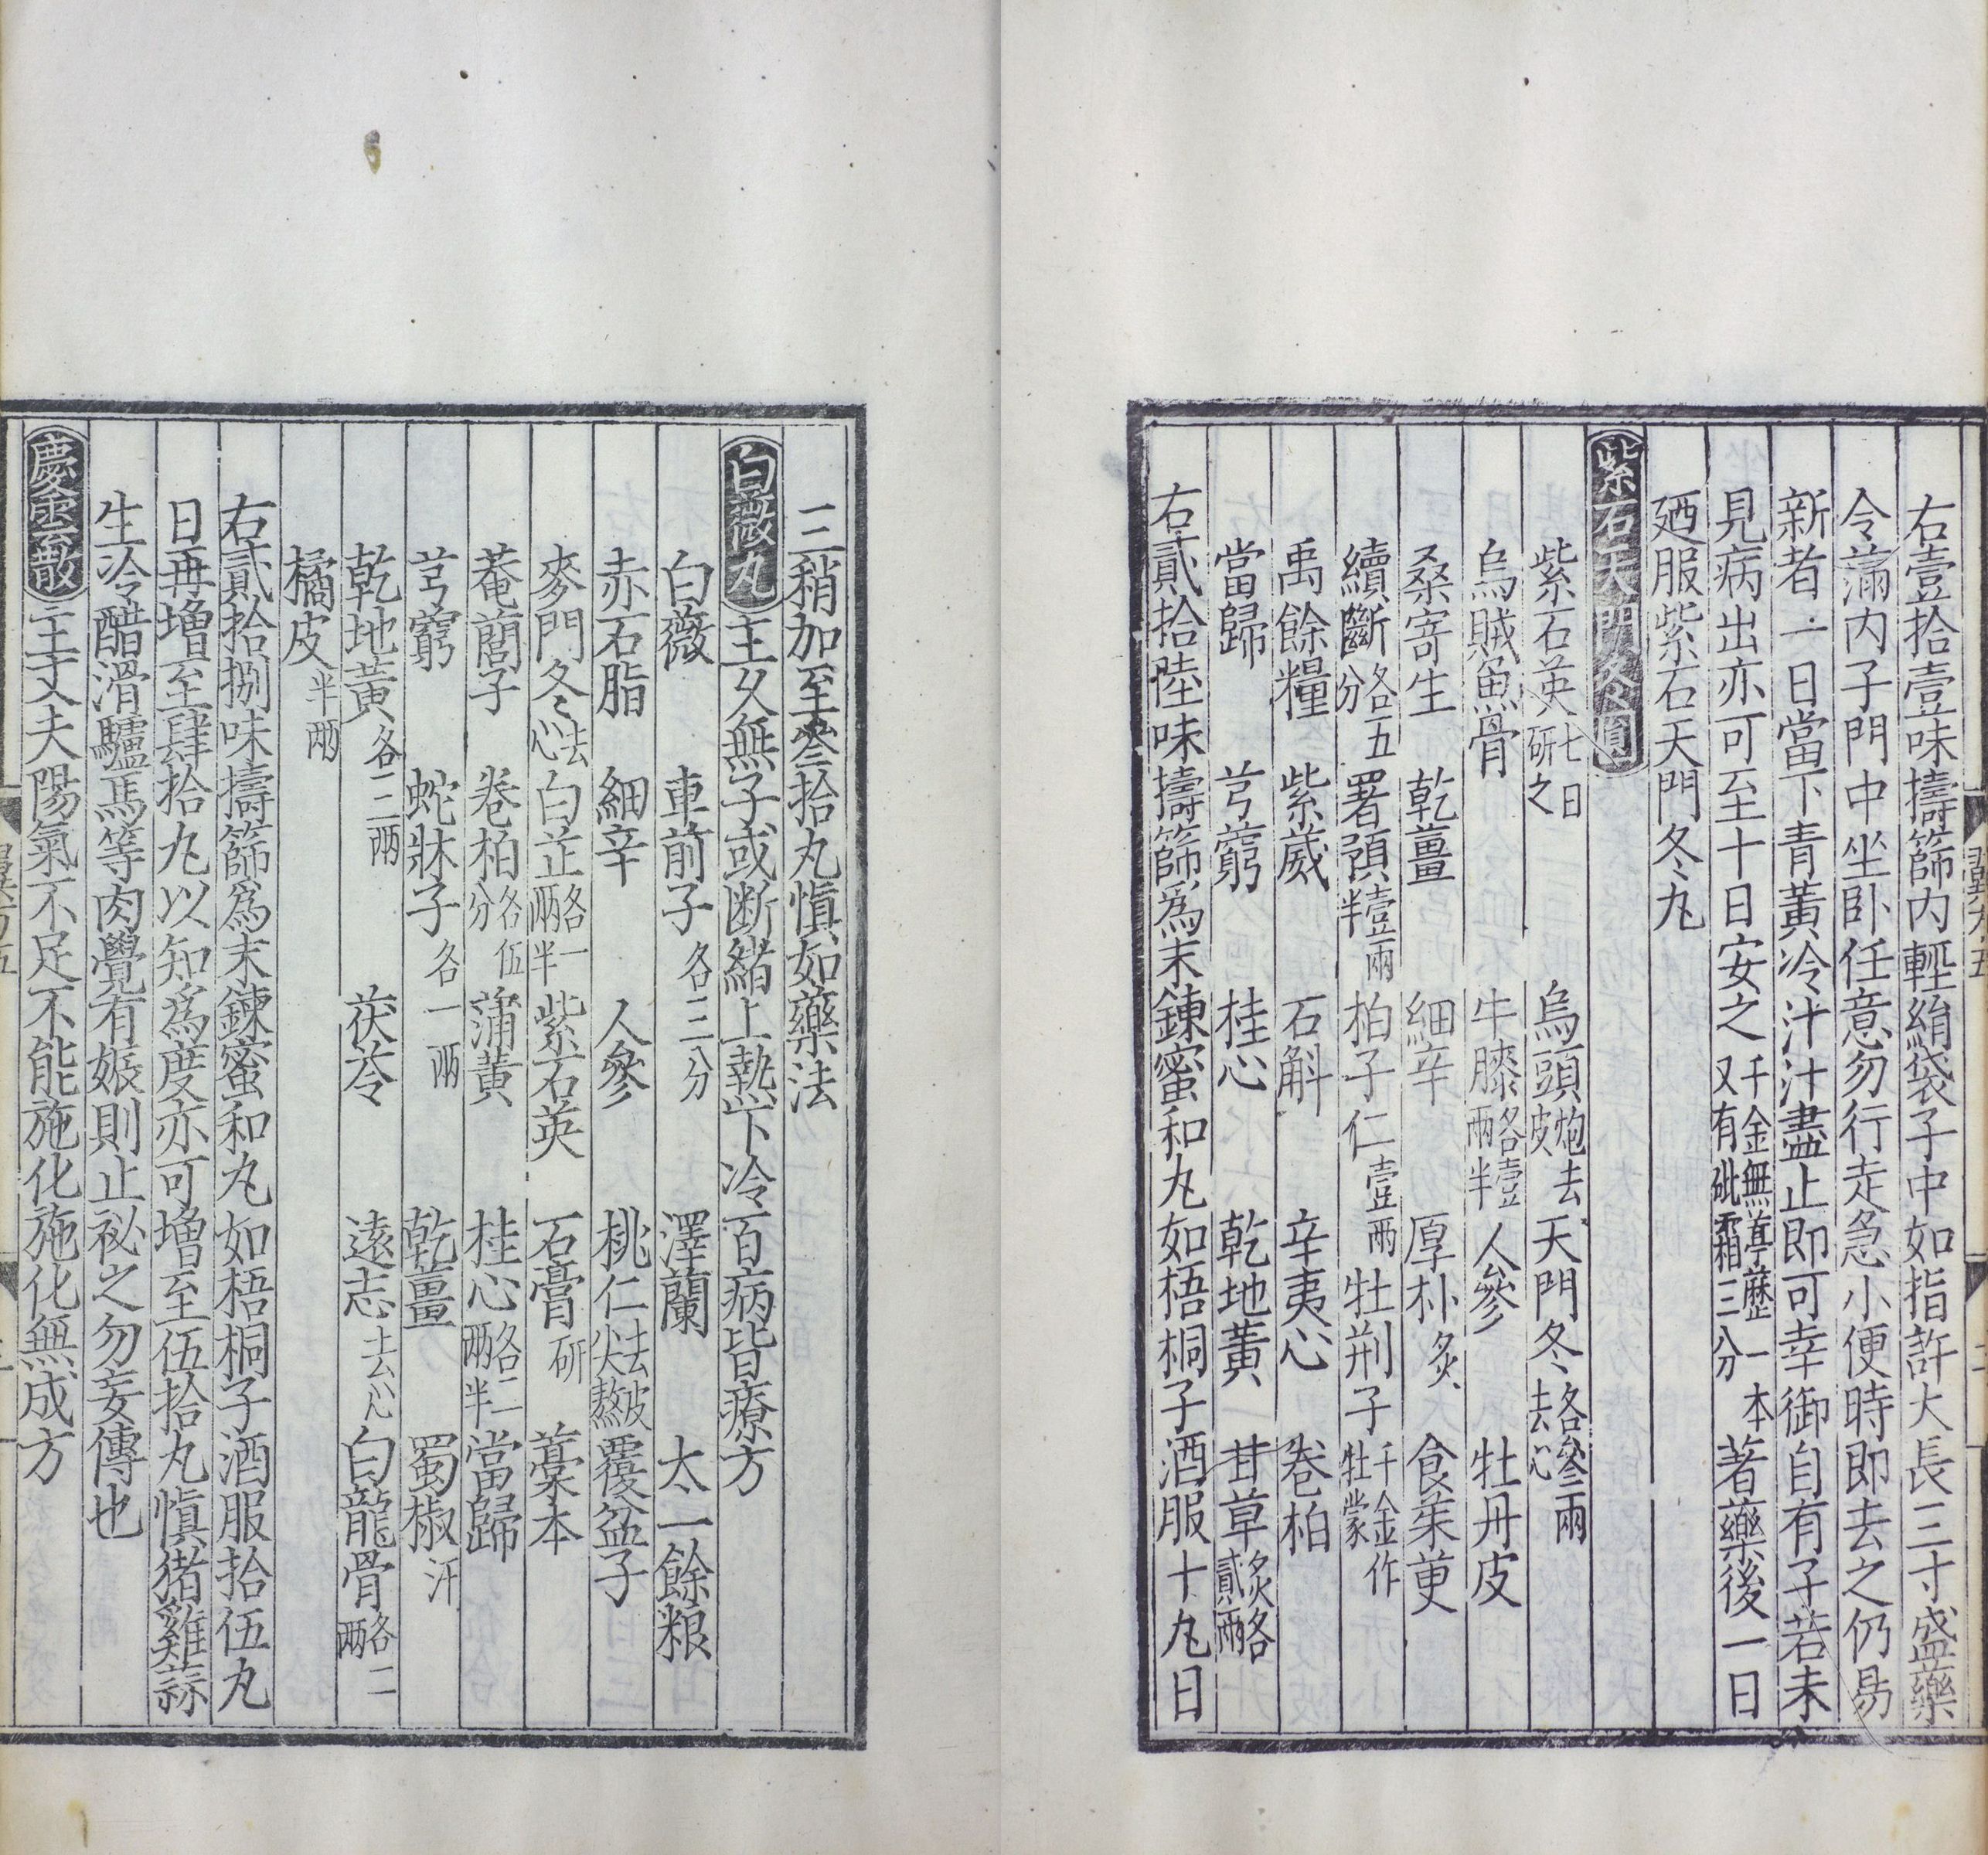 右壹拾壹味擣篩内輕絹袋子中如指許大長三寸盛藥
令滿内子門中坐卧任意勿行走急小便時即去之仍昜
新者一日當下青黃冷汁汁盡止即可幸御自有子若未
見病出亦可至十日安之千金無葶藶一本又有砒霜三分著藥後一日
廼服紫石天門冬丸
紫石天門冬圓
紫石英七日研之 烏頭炮去皮 天門冬各叄兩去心
烏賊魚骨 牛膝各壹兩半 人參 牡丹皮
桑寄生 乾薑 細辛 厚朴炙 食茱萸
續斷各五分 署預壹兩半 柏子仁壹兩 牡荆子千金作牡蒙
禹餘糧 紫葳 石斛 辛夷心 卷柏
當歸 芎藭 桂心 乾地黃 甘草炙各貳兩
右貳拾陸味擣篩爲末鍊蜜和丸如梧桐子酒服十丸日
三稍加至叄拾丸愼如藥法
白薇丸主女無子或断緒上熱下冷百病皆療方
白薇 車前子各三分 澤蘭 太一餘粮
赤石脂 細辛 人參 桃仁去皮尖熬 覆盆子
麥門冬去心 白芷各一兩半 紫石英 石膏研 藁本
菴䕡子 卷柏各伍分 蒲黃 桂心各二兩半 當歸
芎藭 蛇牀子各一兩 乾薑 蜀椒汗
乾地黃各二兩 茯苓 遠志去心 白龍骨各二兩
橘皮半兩
右貳拾捌味擣篩爲末鍊蜜和丸如梧桐子酒服拾伍丸
日再增至肆拾丸以知爲度亦可增至伍拾丸愼猪雞蒜
生冷醋滑驢馬等肉覺有娠則止祕之勿妄傳也
慶雲散主丈夫陽氣不足不能施化施化無成方